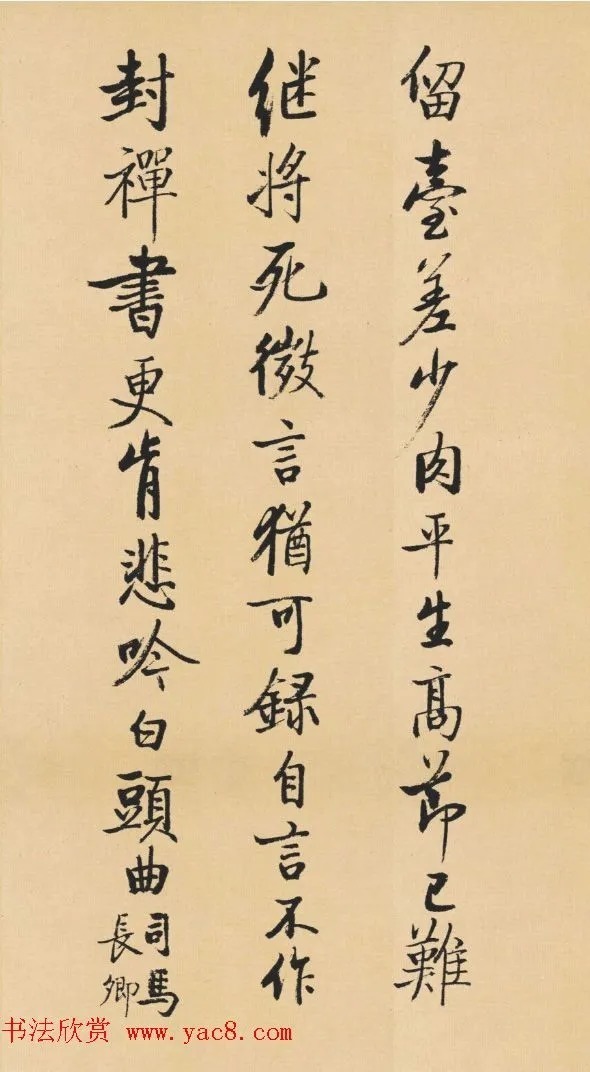 留臺差少肉平生高節已難
继將死微言猶可録自言不作
封禪書更肯悲吟白頭曲司馬
長卿
书法欣赏 www.yac8.com